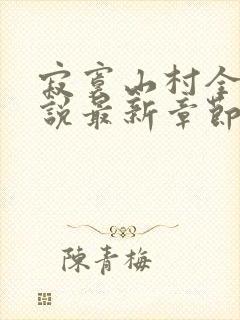 寂寞山村全
說最新章節
陳青梅